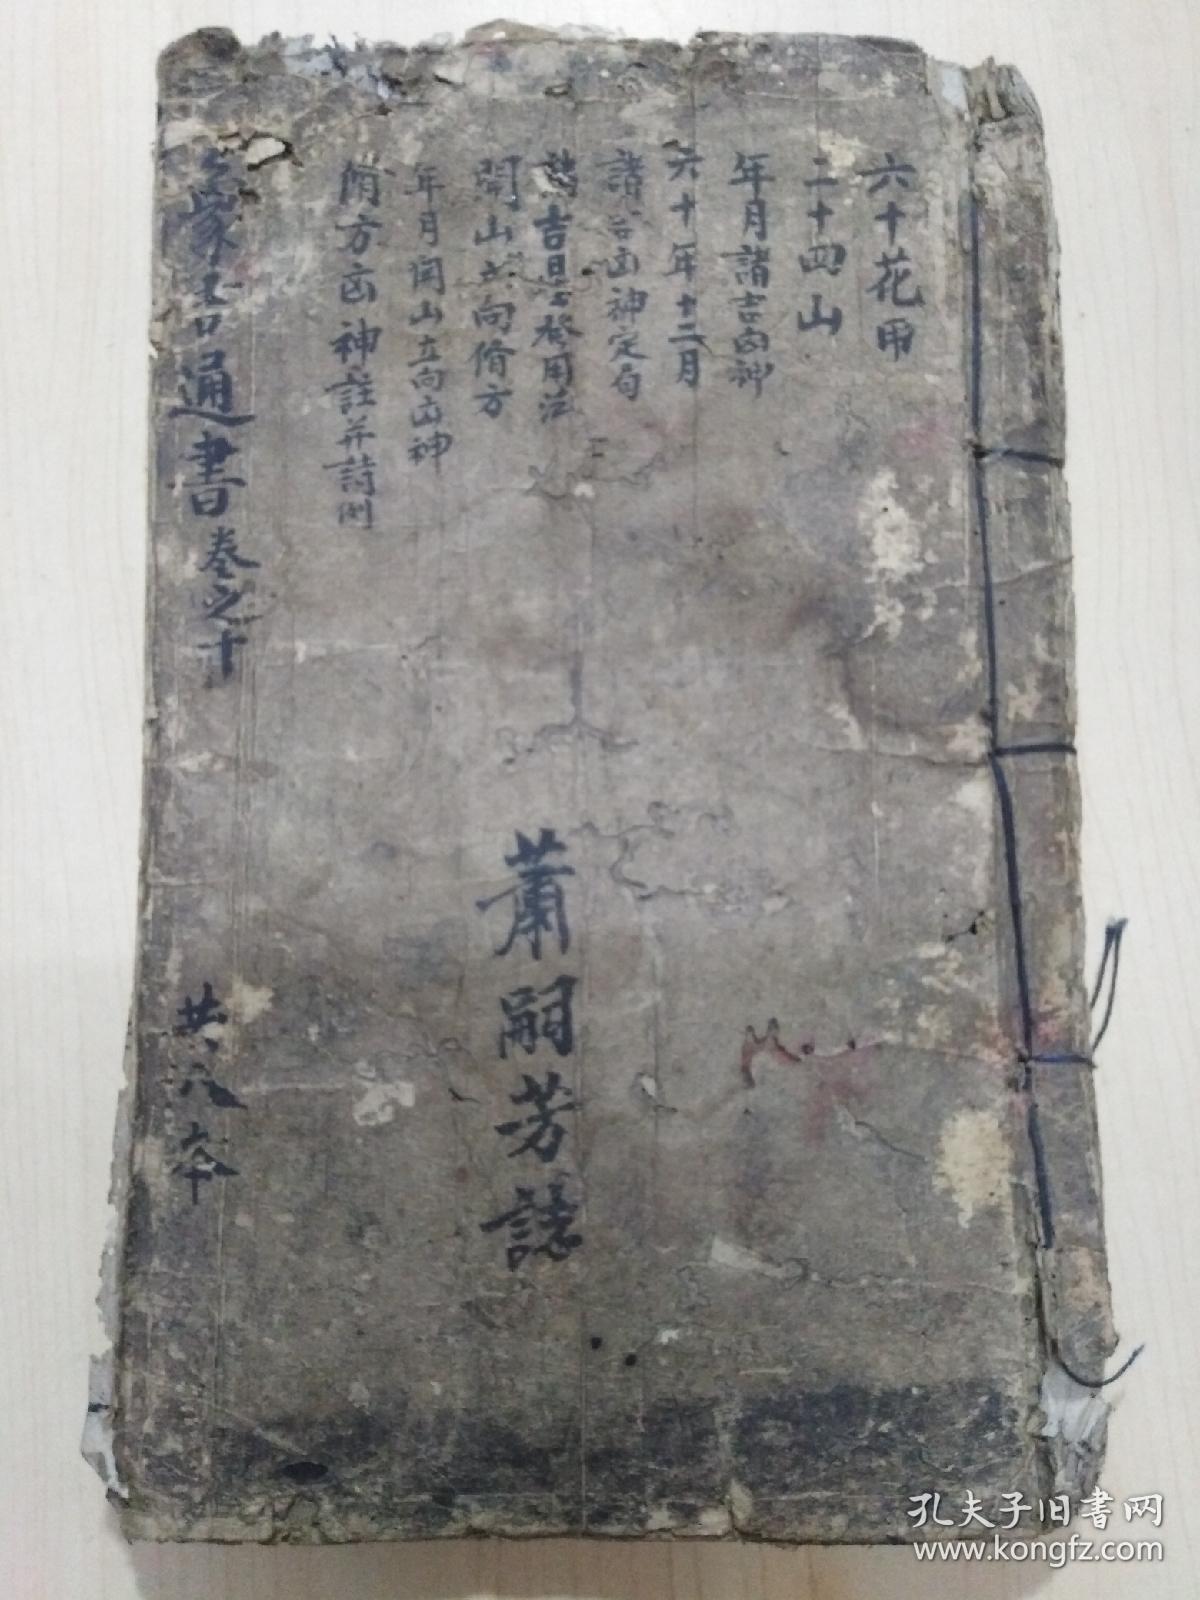 六十花甲
二十四山
年月諸吉凶神
六十年十二月
諸吉凶神定局
諸吉日 用法
開山立向脩方
年月開山立向凶神
脩方凶神註并詩例
象吉通書卷之十
共八本
蕭嗣芳誌
孔夫子旧书网
www.kongfz.com